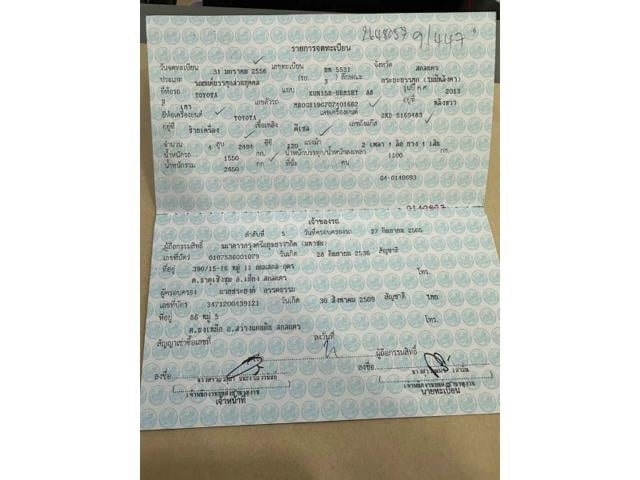 2148057 9/447
รายการจดทะเบียน
วันจดทะเบียน 31 มกราคม 2556 เลขทะเบียน 5531 จังหวัด สกลนคร
ประเภท รถยนต์บรรทุกส่วนบุคคล (รย. 3 ) ลักษณะ กระบะบรรทุก (ไม่มีหลังคา)
ยี่ห้อรถ TOYOTA แบบ รุ่นปี ค.ศ. 2013
สี เทา เลขตัวรถ อยู่ที่
ยี่ห้อเครื่องยนต์ TOYOTA เลขเครื่องยนต์ 2KD-S169483
อยู่ที่ ข้างเครื่อง เชื้อเพลิง ดีเซล เลขถังแก๊ส
จำนวน 4 สูบ 2494 ซีซี 120 แรงม้า 2 เพลา 4 ล้อ ยาง 4 เส้น
น้ำหนักรถ 1550 กก. น้ำหนักบรรทุก/น้ำหนักลงเพลา 1100 กก.
น้ำหนักรวม 2650 กก. ที่นั่ง คน
04-0140693
เจ้าของรถ
ลำดับที่ 5 วันที่ครอบครองรถ 27 กันยายน 2565
ผู้ถือกรรมสิทธิ์ ธนาคารกรุงศรีอยุธยาจำกัด (มหาชน)
เลขที่บัตร 0107536001079 วันเกิด 28 กันยายน 2536 สัญชาติ
ที่อยู่ 390/15-16 หมู่ 11 ถนนสกล-อุดร
ต.ธาตุเชิงชุม อ.เมือง สกลนคร โทร.
ผู้ครอบครอง นายประยงค์
เลขที่บัตร 3471200439121 วันเกิด 30 สิงหาคม 2509 สัญชาติ ไทย
ที่อยู่ 86 หมู่ 5
อ.สว่างแดนดิน สกลนคร โทร.
สัญญาเช่าซื้อเลขที่ ลงวันที่
ผู้ถือกรรมสิทธิ์
ลงชื่อ ลงชื่อ
เจ้าหน้าที่ นายทะเบียน